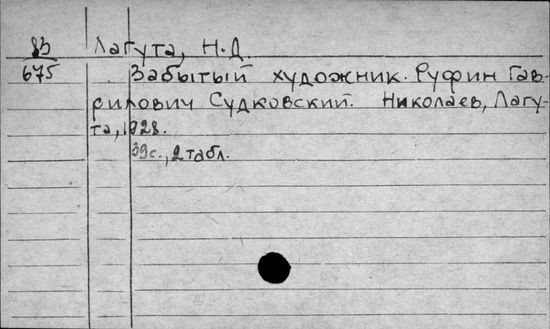 83 Лагута, Н.Д.
675 Забытый художник. Руфин Гав-
рилович Судковский. Николаев, Лагу-
та, 1928.
39с., 2 табл.